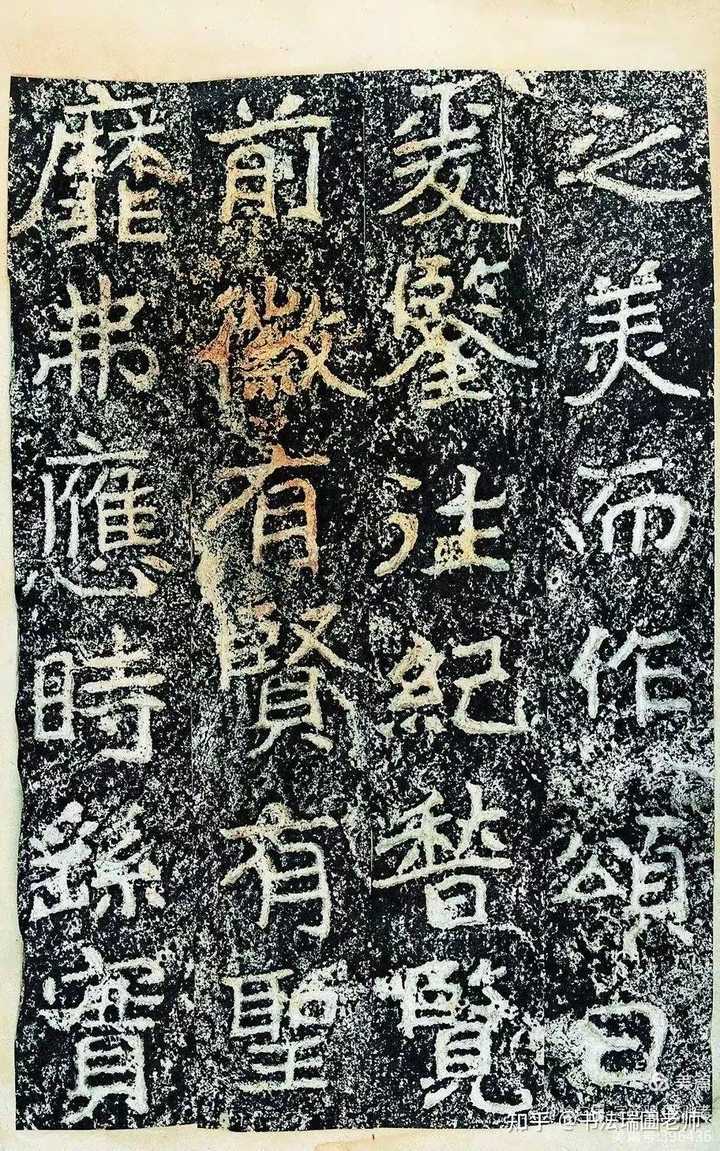 之美而作頌曰
爰鑒往紀稽覽
前徽有賢有聖
靡弗應時繇實
知乎 @书法瑞圃老师